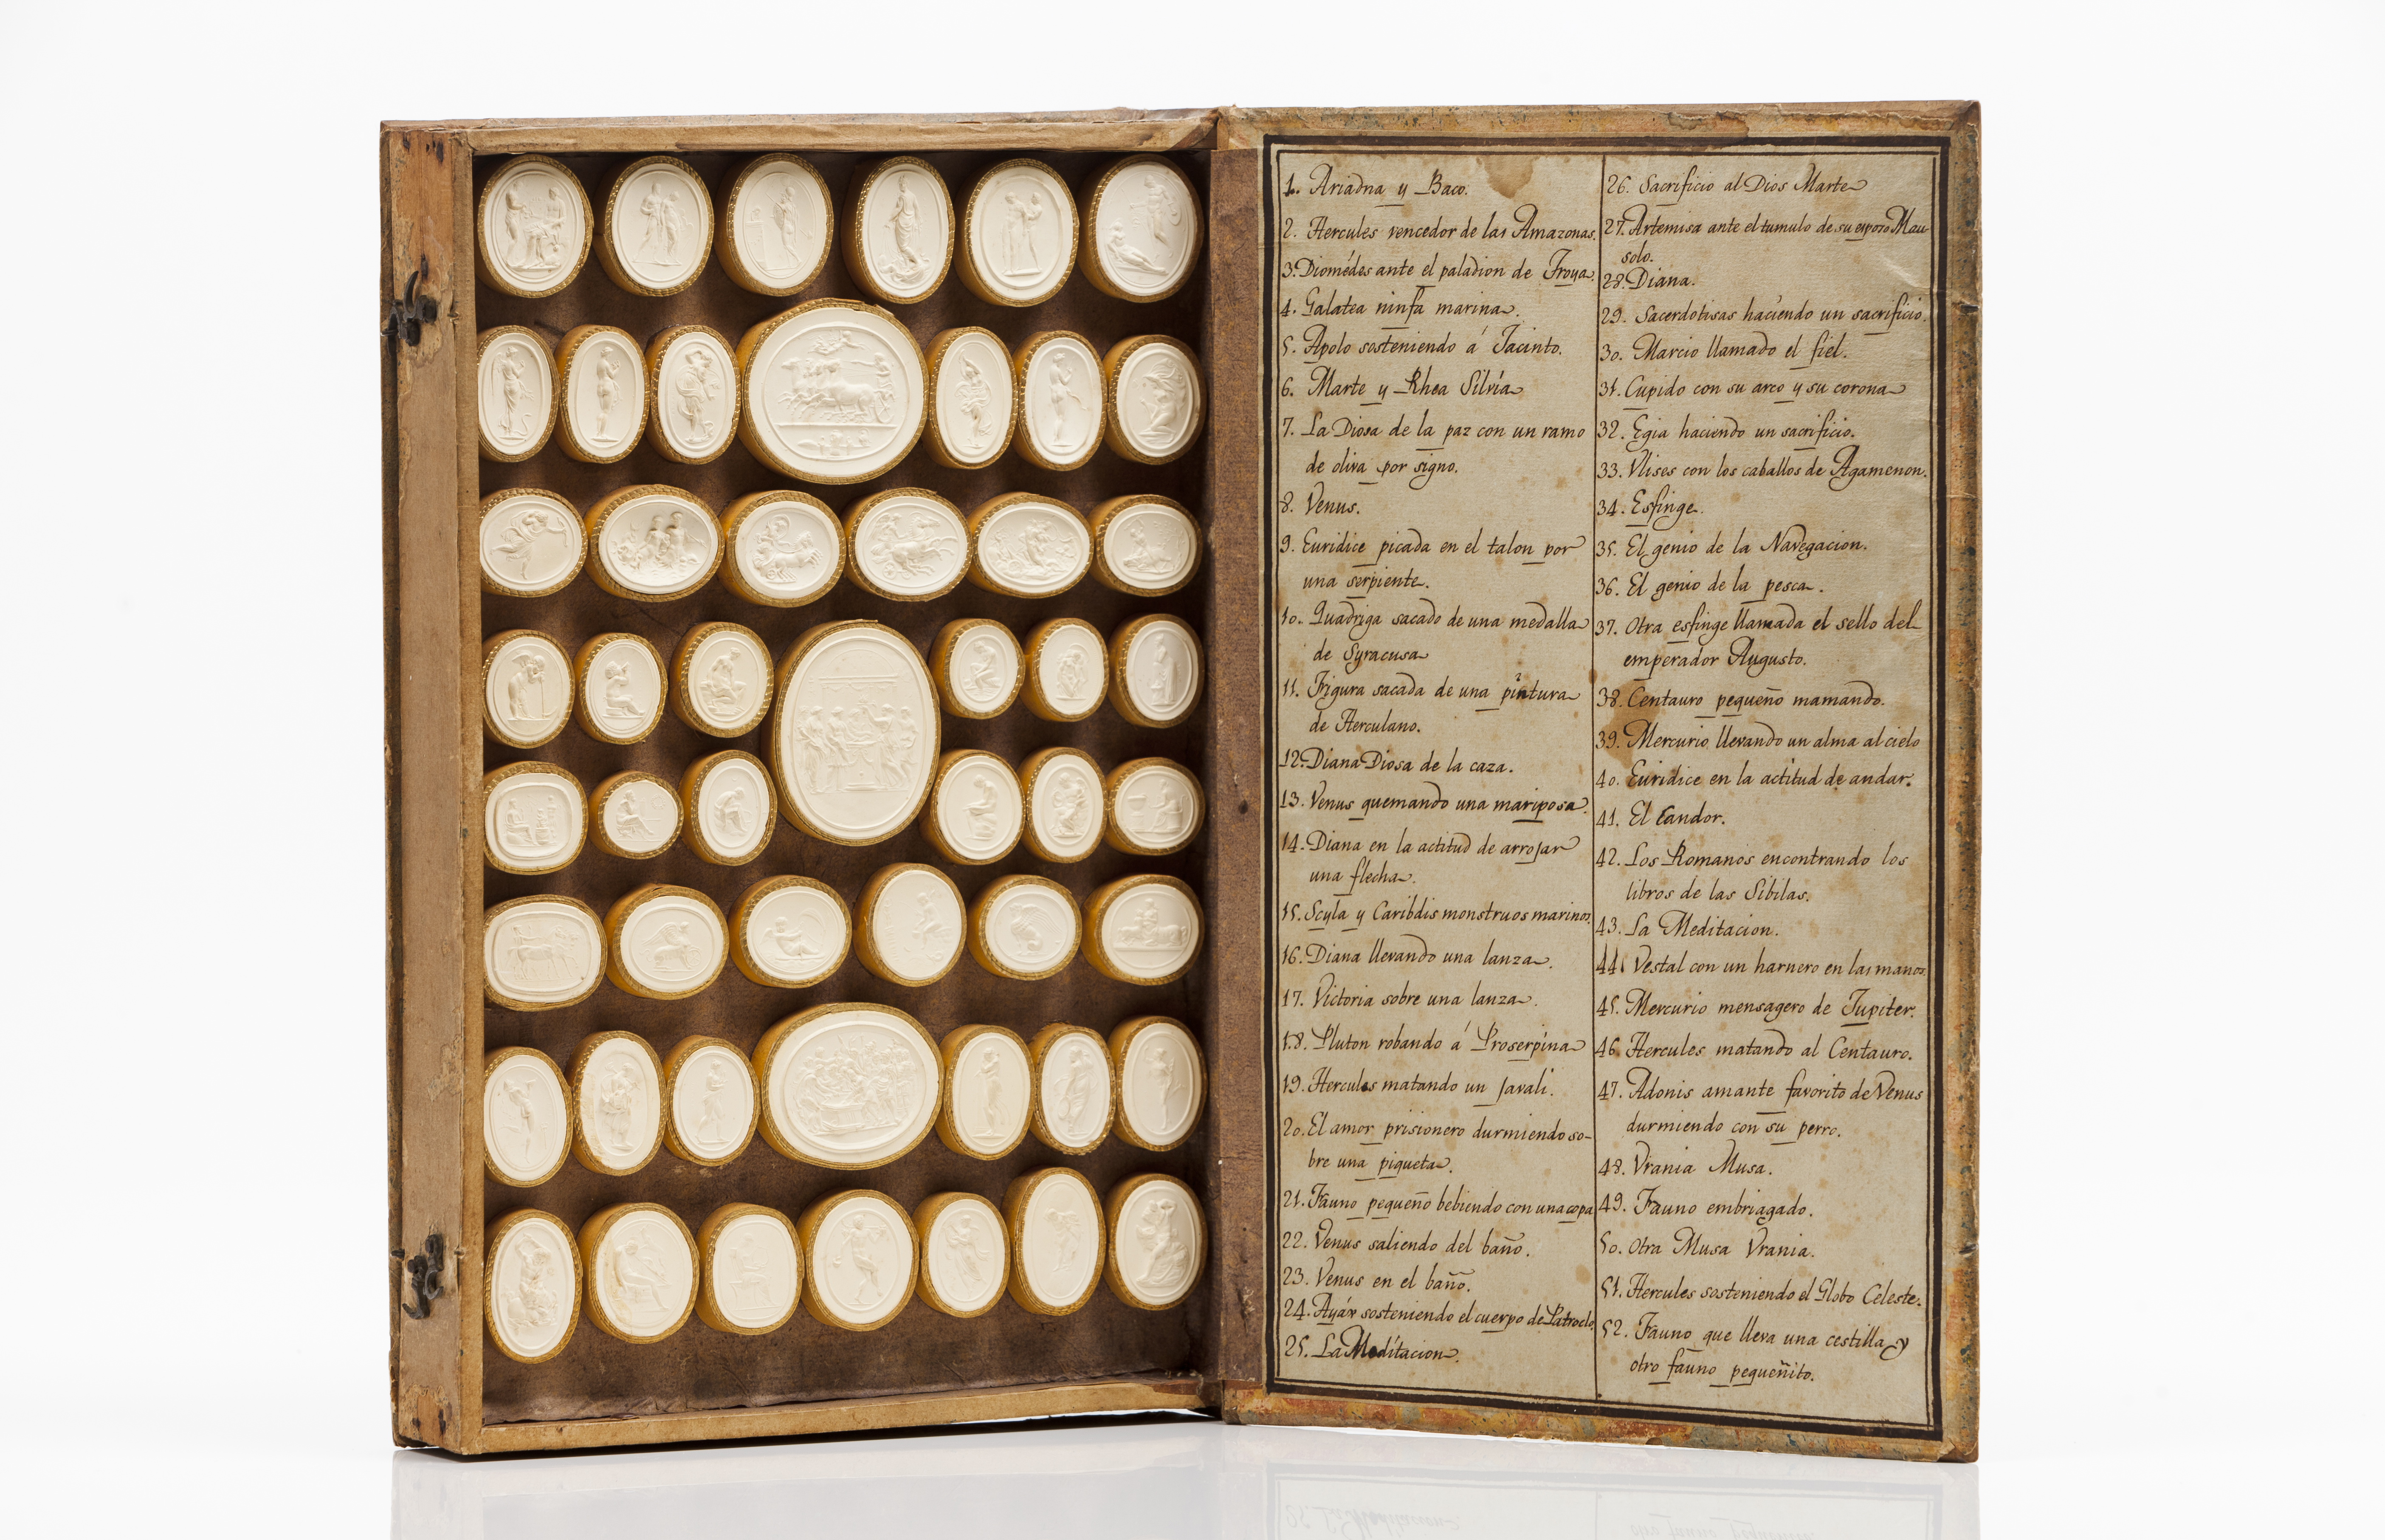 1. Ariadna y Baco.
2. Hercules vencedor de las Amazonas.
3. Diomédes ante el paladion de Troya
4. Galatea ninfa marina.
5. Apolo sosteniendo á Jacinto.
6. Marte y Rhea Silvia
7. La Diosa de la paz con un ramo
de oliva por signo.
8. Venus.
9. Euridice picada en el talon por
una serpiente.
10. Quadriga sacado de una medalla
de Syracusa
11. Figura sacada de una pintura
de Herculano.
12. Diana Diosa de la caza.
13. Venus quemando una mariposa.
14. Diana en la actitud de arrojar
una flecha.
15. Scyla y Caribdis monstruos marinos.
16. Diana llevando una lanza.
17. Victoria sobre una lanza.
18. Pluton robando á Proserpina
19. Hercules matando un Javali.
20. El amor prisionero durmiendo so-
bre una piqueta.
21. Fauno pequeño bebiendo con una copa
22. Venus saliendo del baño.
23. Venus en el baño.
24. Ayáx sosteniendo el cuerpo de Patroclo.
25. La Meditacion.
26. Sacrificio al Dios Marte
27. Artemisa ante el tumulo de su esposo Mau
solo.
28. Diana.
29. Sacerdotisas haciendo un sacrificio.
30. Marcio llamado el fiel.
31. Cupido con su arco y su corona
32. Egia haciendo un sacrificio.
33. Vlises con los caballos de Agamenon.
34. Esfinge.
35. El genio de la Navegacion.
36. El genio de la pesca.
37. Otra esfinge llamada el sello del
emperador Augusto.
38. Centauro pequeño mamando.
39. Mercurio llevando un alma al cielo
40. Euridice en la actitud de andar.
41. El Candor.
42. Los Romanos encontrando los
libros de las Sibilas.
43. La Meditacion.
44. Vestal con un harnero en las manos.
45. Mercurio mensagero de Jupiter.
46. Hercules matando al Centauro.
47. Adonis amante favorito de Venus
durmiendo con su perro.
48. Vrania Musa.
49. Fauno embriagado.
50. Otra Musa Vrania.
51. Hercules sosteniendo el Globo Celeste.
52. Fauno que lleva una cestilla y
otro fauno pequeñito.